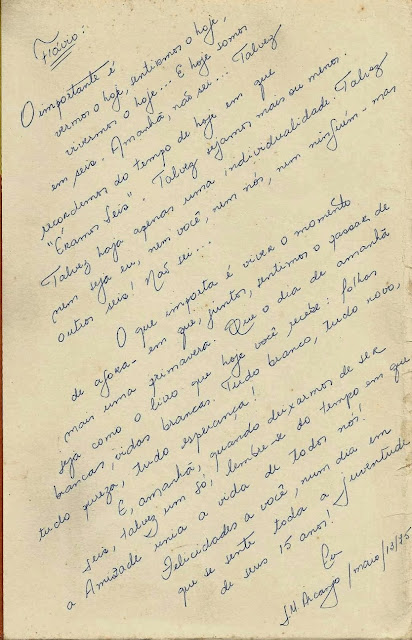 Flávio:
O importante é
vermos o hoje, sentirmos o hoje,
vivermos o hoje... E hoje somos
em seis. Amanhã, não sei... Talvez
recordemos do tempo de hoje em que
"Éramos Seis". Talvez sejamos mais ou menos.
Talvez haja apenas uma individualidade. Talvez
nem seja eu, nem você, nem nós, nem ninguém - mas
outros seis! Não sei...
O que importa é viver o momento
de agora - em que, juntos, sentimos o passar de
mais uma primavera. Que o dia de amanhã
seja como o livro que hoje você recebe: folhas
brancas, vidas brancas. Tudo branco, tudo novo,
tudo pureza, tudo esperança!
E, amanhã, quando deixarmos de ser
seis, talvez um só, lembre-se do tempo em que
a Amizade unia a vida de todos nós!
Felicidades a você, num dia em
que se sente toda a juventude
de seus 15 anos!
J.M. Arcanjo / maio / 13/75